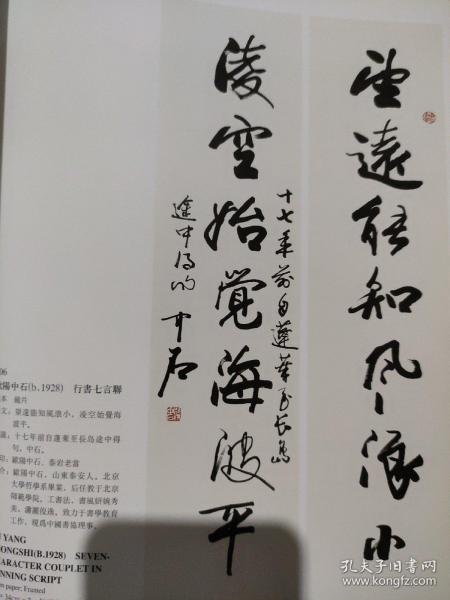 望遠能知風浪小
凌空始覺海波平
十七年前自蓬莱至長島
途中得句 中石
06
歐陽中石(b.1928) 行書七言聯
本 鏡片
文：望遠能知風浪小，凌空始覺海
波平。
識：十七年前自蓬萊至長島途中得
句，中石。
印：歐陽中石、泰岩老當
介：歐陽中石，山東泰安人。北京
大學哲學系畢業，后任教于北京
師範學院。工書法，書風妍婉秀
美，瀟灑俊逸。致力于書學教育
工作，現爲中國書協理事。
YANG
ONGSHI(B.1928) SEVEN-
ARACTER COUPLET IN
NNING SCRIPT
on paper; Framed
孔夫子旧书网